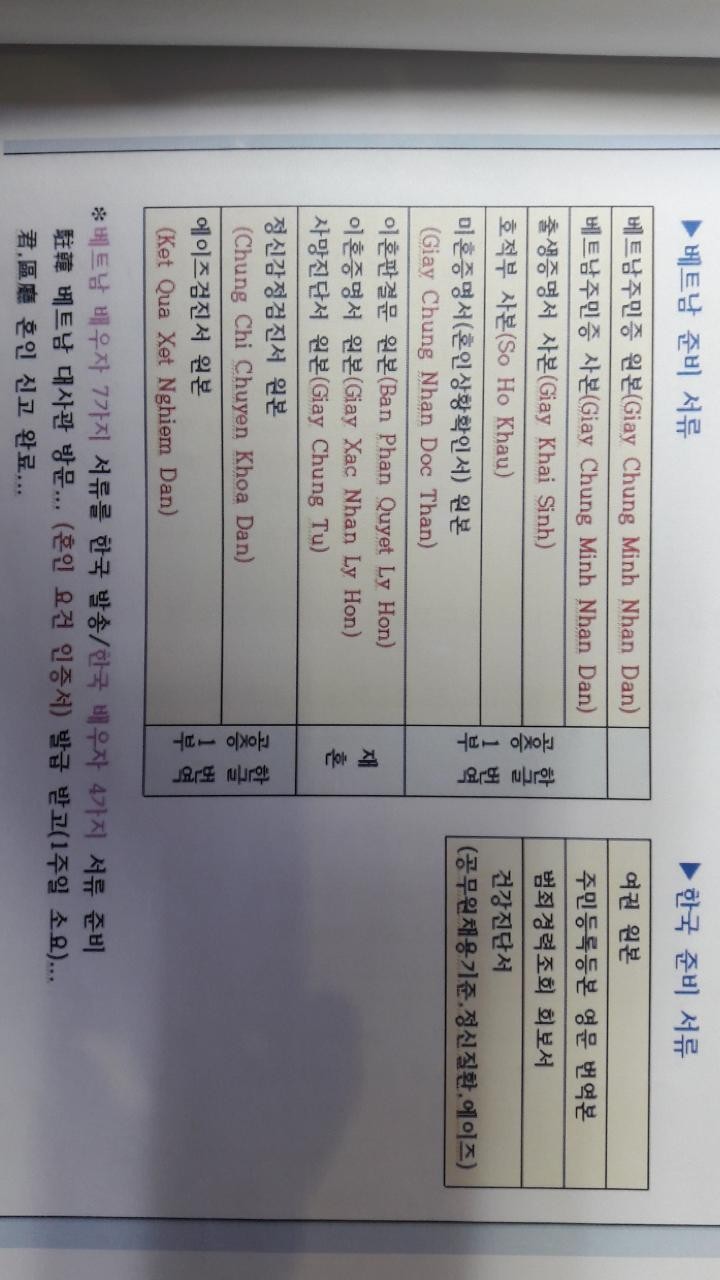 ▶베트남 준비 서류
베트남주민증 원본(Giay Chung Minh Nhan Dan)
베트남주민증 사본(Giay Chung Minh Nhan Dan)
출생증명서 사본(Giay Khai Sinh)
호적부 사본(So Ho Khau)
미혼증명서(혼인상황확인서) 원본
(Giay Chung Nhan Doc Than)
한글 번역
공증 1 부
이혼판결문 원본(Ban Phan Quyet Ly Hon)
이혼증명서 원본(Giay Xac Nhan Ly Hon)
사망진단서 원본(Giay Chung Tu)
재
혼
정신감정검진서 원본
(Chung Chi Chuyen Khoa Dan)
에이즈검진서 원본
(Ket Qua Xet Nghiem Dan)
한글 번역
공증 1 부
▶한국 준비 서류
여권 원본
주민등록등본 영문 번역본
범죄경력조회 회보서
건강진단서
(공무원채용기준,정신질환,에이즈)
※베트남 배우자 7가지 서류를 한국 발송/한국 배우자 4가지 서류 준비
駐韓 베트남 대사관 방문... (혼인 요건 인증서) 발급 받고(1주일 소요)...
君,區廳 혼인 신고 완료...